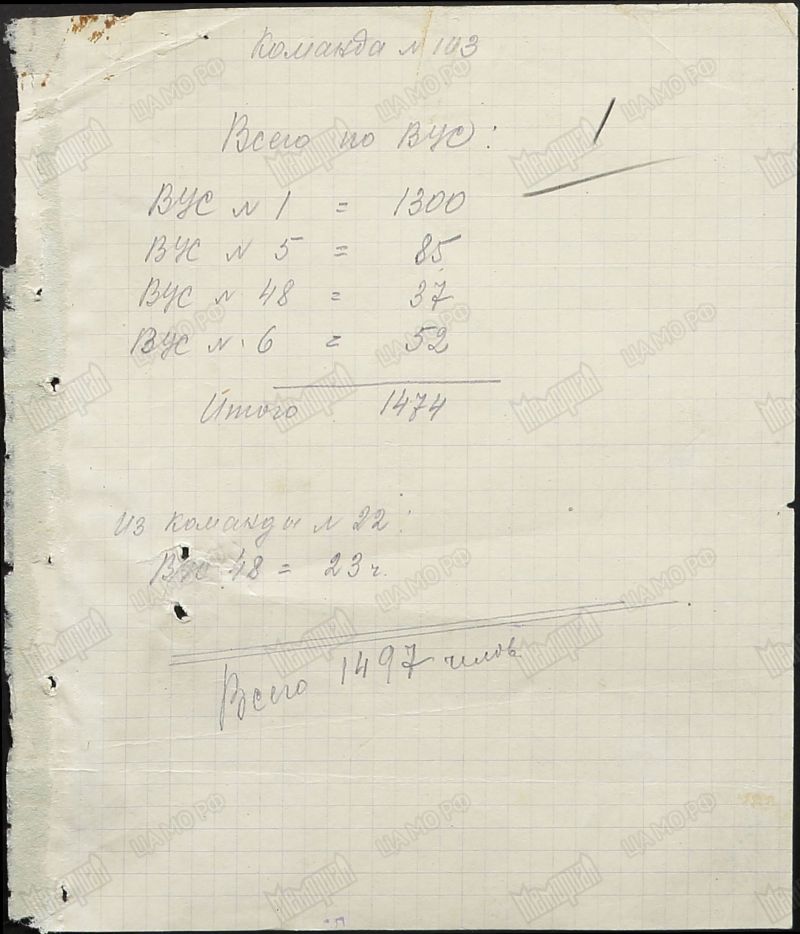 Команда № 143
1
Всего по ВУС:
ВУС № 1 = 1300
ВУС № 5 = 85
ВУС № 48 = 37
ВУС № 6 = 52
Итого 1474
Из команды № 22:
ВУС 48 = 23 ч.
Всего 1497 челов